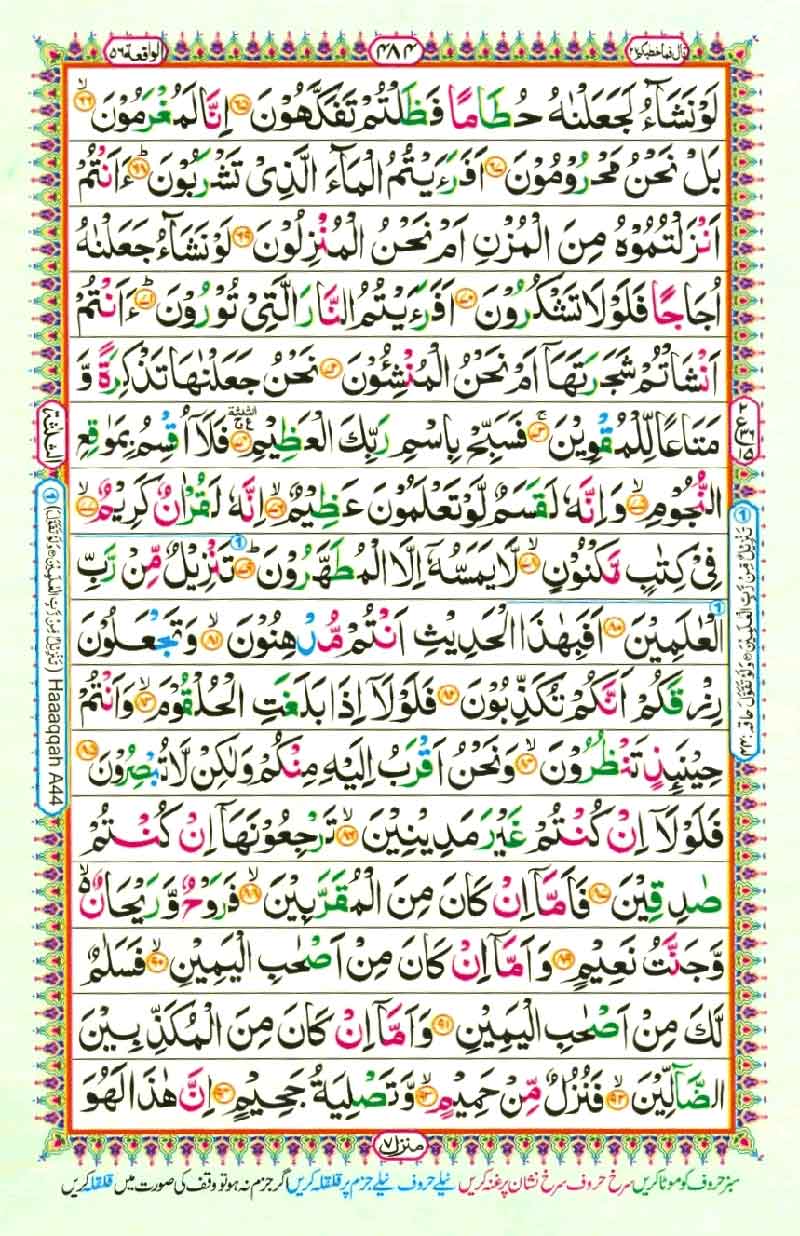 الواقعة ٥٦
٤٨٤
قال فما خطبكم ٢٧
لَوْ نَشَآءُ لَجَعَلْنٰهُ حُطَامًا فَظَلْتُمْ تَفَكَّهُوْنَ ﴿٦٥﴾ اِنَّا لَمُغْرَمُوْنَ ﴿٦٦﴾ۙ
بَلْ نَحْنُ مَحْرُوْمُوْنَ ﴿٦٧﴾ اَفَرَءَيْتُمُ الْمَآءَ الَّذِىْ تَشْرَبُوْنَ ﴿٦٨﴾ؕ ءَاَنْتُمْ
اَنْزَلْتُمُوْهُ مِنَ الْمُزْنِ اَمْ نَحْنُ الْمُنْزِلُوْنَ ﴿٦٩﴾ لَوْ نَشَآءُ جَعَلْنٰهُ
اُجَاجًا فَلَوْلَا تَشْكُرُوْنَ ﴿٧٠﴾ اَفَرَءَيْتُمُ النَّارَ الَّتِىْ تُوْرُوْنَ ﴿٧١﴾ؕ ءَاَنْتُمْ
اَنْشَاْتُمْ شَجَرَتَهَاۤ اَمْ نَحْنُ الْمُنْشِـُٔوْنَ ﴿٧٢﴾ نَحْنُ جَعَلْنٰهَا تَذْكِرَةً وَّ
مَتَاعًا لِّلْمُقْوِيْنَ ﴿٧٣﴾ۚ فَسَبِّحْ بِاسْمِ رَبِّكَ الْعَظِيْمِ ﴿٧٤﴾ فَلَاۤ اُقْسِمُ بِمَوٰقِعِ
النُّجُوْمِ ﴿٧٥﴾ۙ وَاِنَّهٗ لَقَسَمٌ لَّوْ تَعْلَمُوْنَ عَظِيْمٌ ﴿٧٦﴾ۙ اِنَّهٗ لَقُرْاٰنٌ كَرِيْمٌ ﴿٧٧﴾ۙ
فِىْ كِتٰبٍ مَّكْنُوْنٍ ﴿٧٨﴾ۙ لَّا يَمَسُّهٗۤ اِلَّا الْمُطَهَّرُوْنَ ﴿٧٩﴾ؕ تَنْزِيْلٌ مِّنْ رَّبِّ
الْعٰلَمِيْنَ ﴿٨٠﴾ اَفَبِهٰذَا الْحَدِيْثِ اَنْتُمْ مُّدْهِنُوْنَ ﴿٨١﴾ۙ وَتَجْعَلُوْنَ
رِزْقَكُمْ اَنَّكُمْ تُكَذِّبُوْنَ ﴿٨٢﴾ فَلَوْلَاۤ اِذَا بَلَغَتِ الْحُلْقُوْمَ ﴿٨٣﴾ۙ وَاَنْتُمْ
حِيْنَئِذٍ تَنْظُرُوْنَ ﴿٨٤﴾ۙ وَنَحْنُ اَقْرَبُ اِلَيْهِ مِنْكُمْ وَلٰكِنْ لَّا تُبْصِرُوْنَ ﴿٨٥﴾
فَلَوْلَاۤ اِنْ كُنْتُمْ غَيْرَ مَدِيْنِيْنَ ﴿٨٦﴾ۙ تَرْجِعُوْنَهَاۤ اِنْ كُنْتُمْ
صٰدِقِيْنَ ﴿٨٧﴾ فَاَمَّاۤ اِنْ كَانَ مِنَ الْمُقَرَّبِيْنَ ﴿٨٨﴾ۙ فَرَوْحٌ وَّرَيْحَانٌ ۙ۬
وَّجَنَّتُ نَعِيْمٍ ﴿٨٩﴾ وَاَمَّاۤ اِنْ كَانَ مِنْ اَصْحٰبِ الْيَمِيْنِ ﴿٩٠﴾ۙ فَسَلٰمٌ
لَّكَ مِنْ اَصْحٰبِ الْيَمِيْنِ ﴿٩١﴾ وَاَمَّاۤ اِنْ كَانَ مِنَ الْمُكَذِّبِيْنَ
الضَّآلِّيْنَ ﴿٩٢﴾ۙ فَنُزُلٌ مِّنْ حَمِيْمٍ ﴿٩٣﴾ۙ وَّتَصْلِيَةُ جَحِيْمٍ ﴿٩٤﴾ اِنَّ هٰذَا لَهُوَ
الثلثة
(تَنْزِيْلٌ مِّنْ رَّبِّ الْعٰلَمِيْنَ ۞ وَلَوْ تَقَوَّلَ) Haaaqqah A44
تَنْزِيْلٌ مِّنْ رَّبِّ الْعٰلَمِيْنَ ۞ وَلَوْ تَقَوَّلَ حاقہ
منزل ٧
سبز حروف کو موٹا کریں سرخ حروف سرخ نشان پر غنہ کریں نیلے حروف نیلے جزم پر قلقلہ کریں اگر جزم نہ ہو تو وقف کی صورت میں قلقلہ کریں